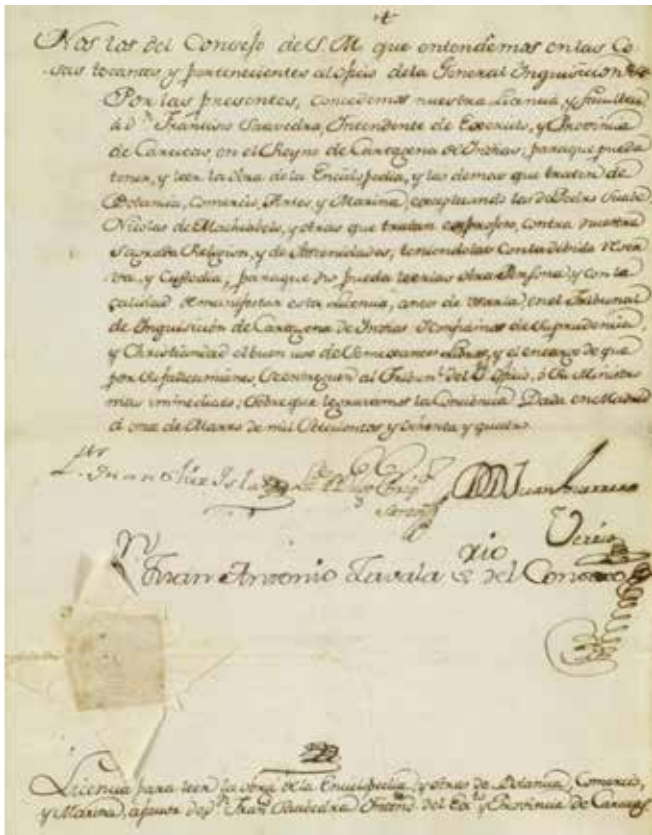 Nos los del Consejo de S. M. que entendemos en las Co
sas tocantes, y pertenecientes al oficio de la General Inquisicion
Por las presentes, concedemos nuestra Licencia, y facultad
á d.n Francisco Saavedra, Intendente de Exercito, y Provincia
de Caracas, en el Reyno de Cartagena de Indias, para que pueda
tener, y leer la obra de la Enciclopedia, y las demas que traten de
Botanica, Comercio, Artes, y Marina, exceptuando las de Pedro Suabe,
Nicolas de Machiabelo, y otras que tratan exprofeso, contra nuestra
Sagrada Religion, y de obscenidades, teniendolas con la debida reser
va, y Custodia, para que no pueda leerlas otra Persona, y con la
calidad de manifestar esta Licencia, antes de usarla, en el Tribunal
de Inquisición de Cartagena de Indias
y Christiandad el buen uso de semejantes Libros, y el encargo de que
por su fallecimiento, se entreguen al Tribun.l del S.to oficio, ó su Ministro
mas inmediato; sobre que le gravamos la Conciencia. Dada en Madrid
á once de Marzo de mil setecientos y ochenta y quatro
Juan
Juan Antonio del Consejo
Licencia para leer la obra de la Enciclopedia, y otras de Botanica, Comercio,
y Marina, a favor de d.n Fran.co Saabedra Intend.te del Ex.to y Provincia de Caracas